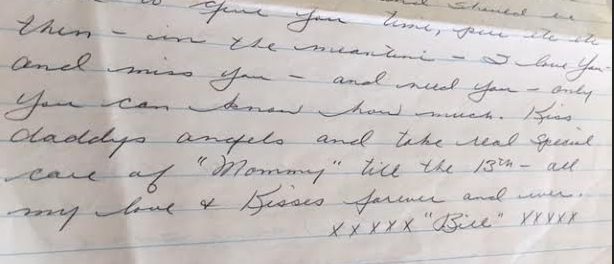 and should be
to give you time, etc etc
then - in the meantime - I love you -
and miss you - and need you - only
you can know how much. Kiss
daddys angels and take real special
care of "Mommy" till the 13th - all
my love & Kisses forever and ever.
xxxxx "Bill" xxxxx